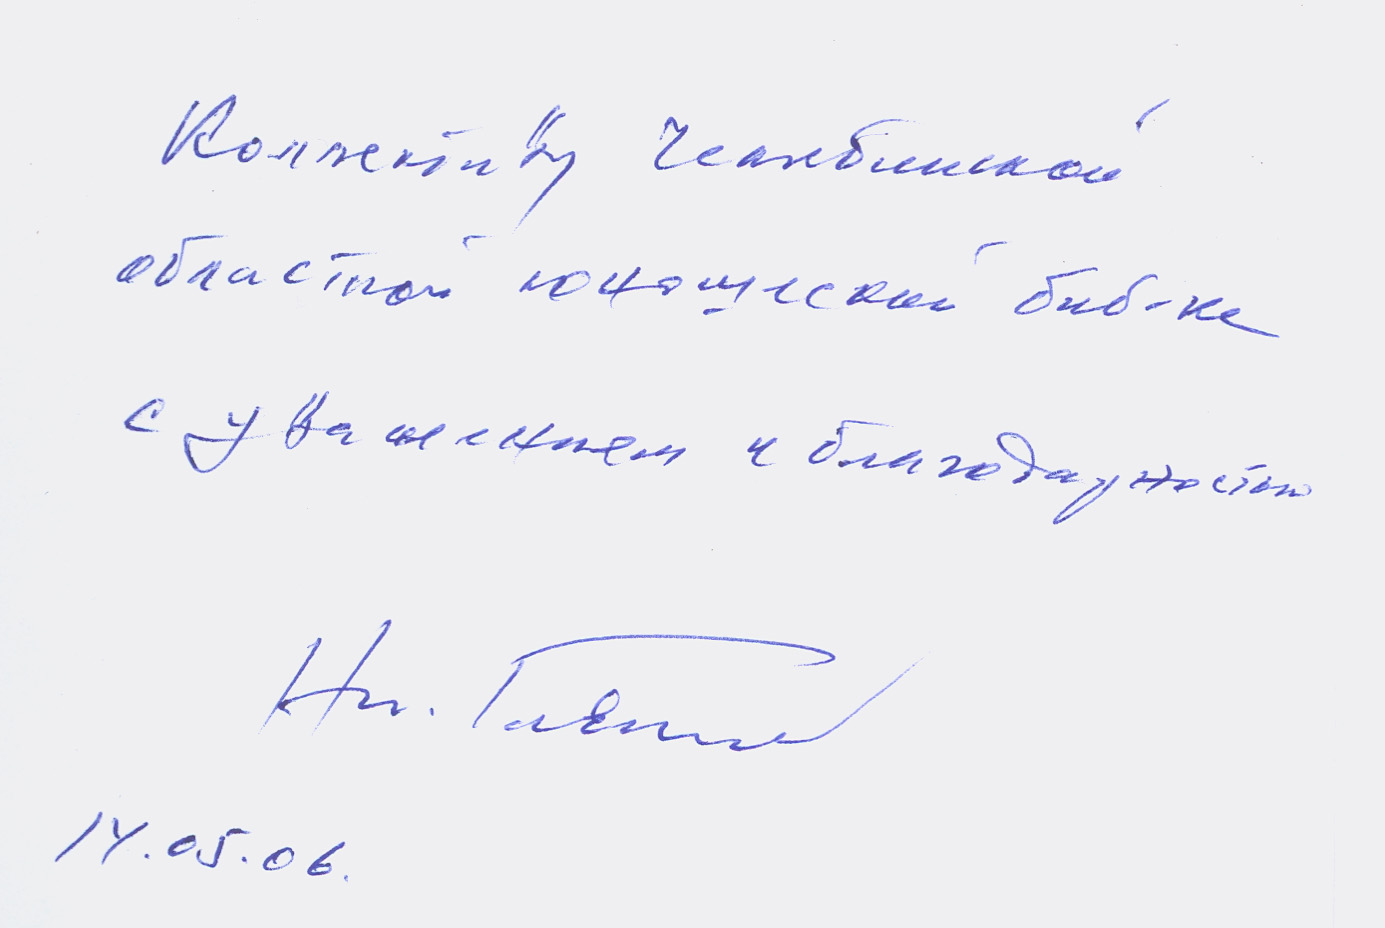 Коллективу Челябинской
областной юношеской биб-ке
с уважением и благодарностью
Ни.
14.05.06.